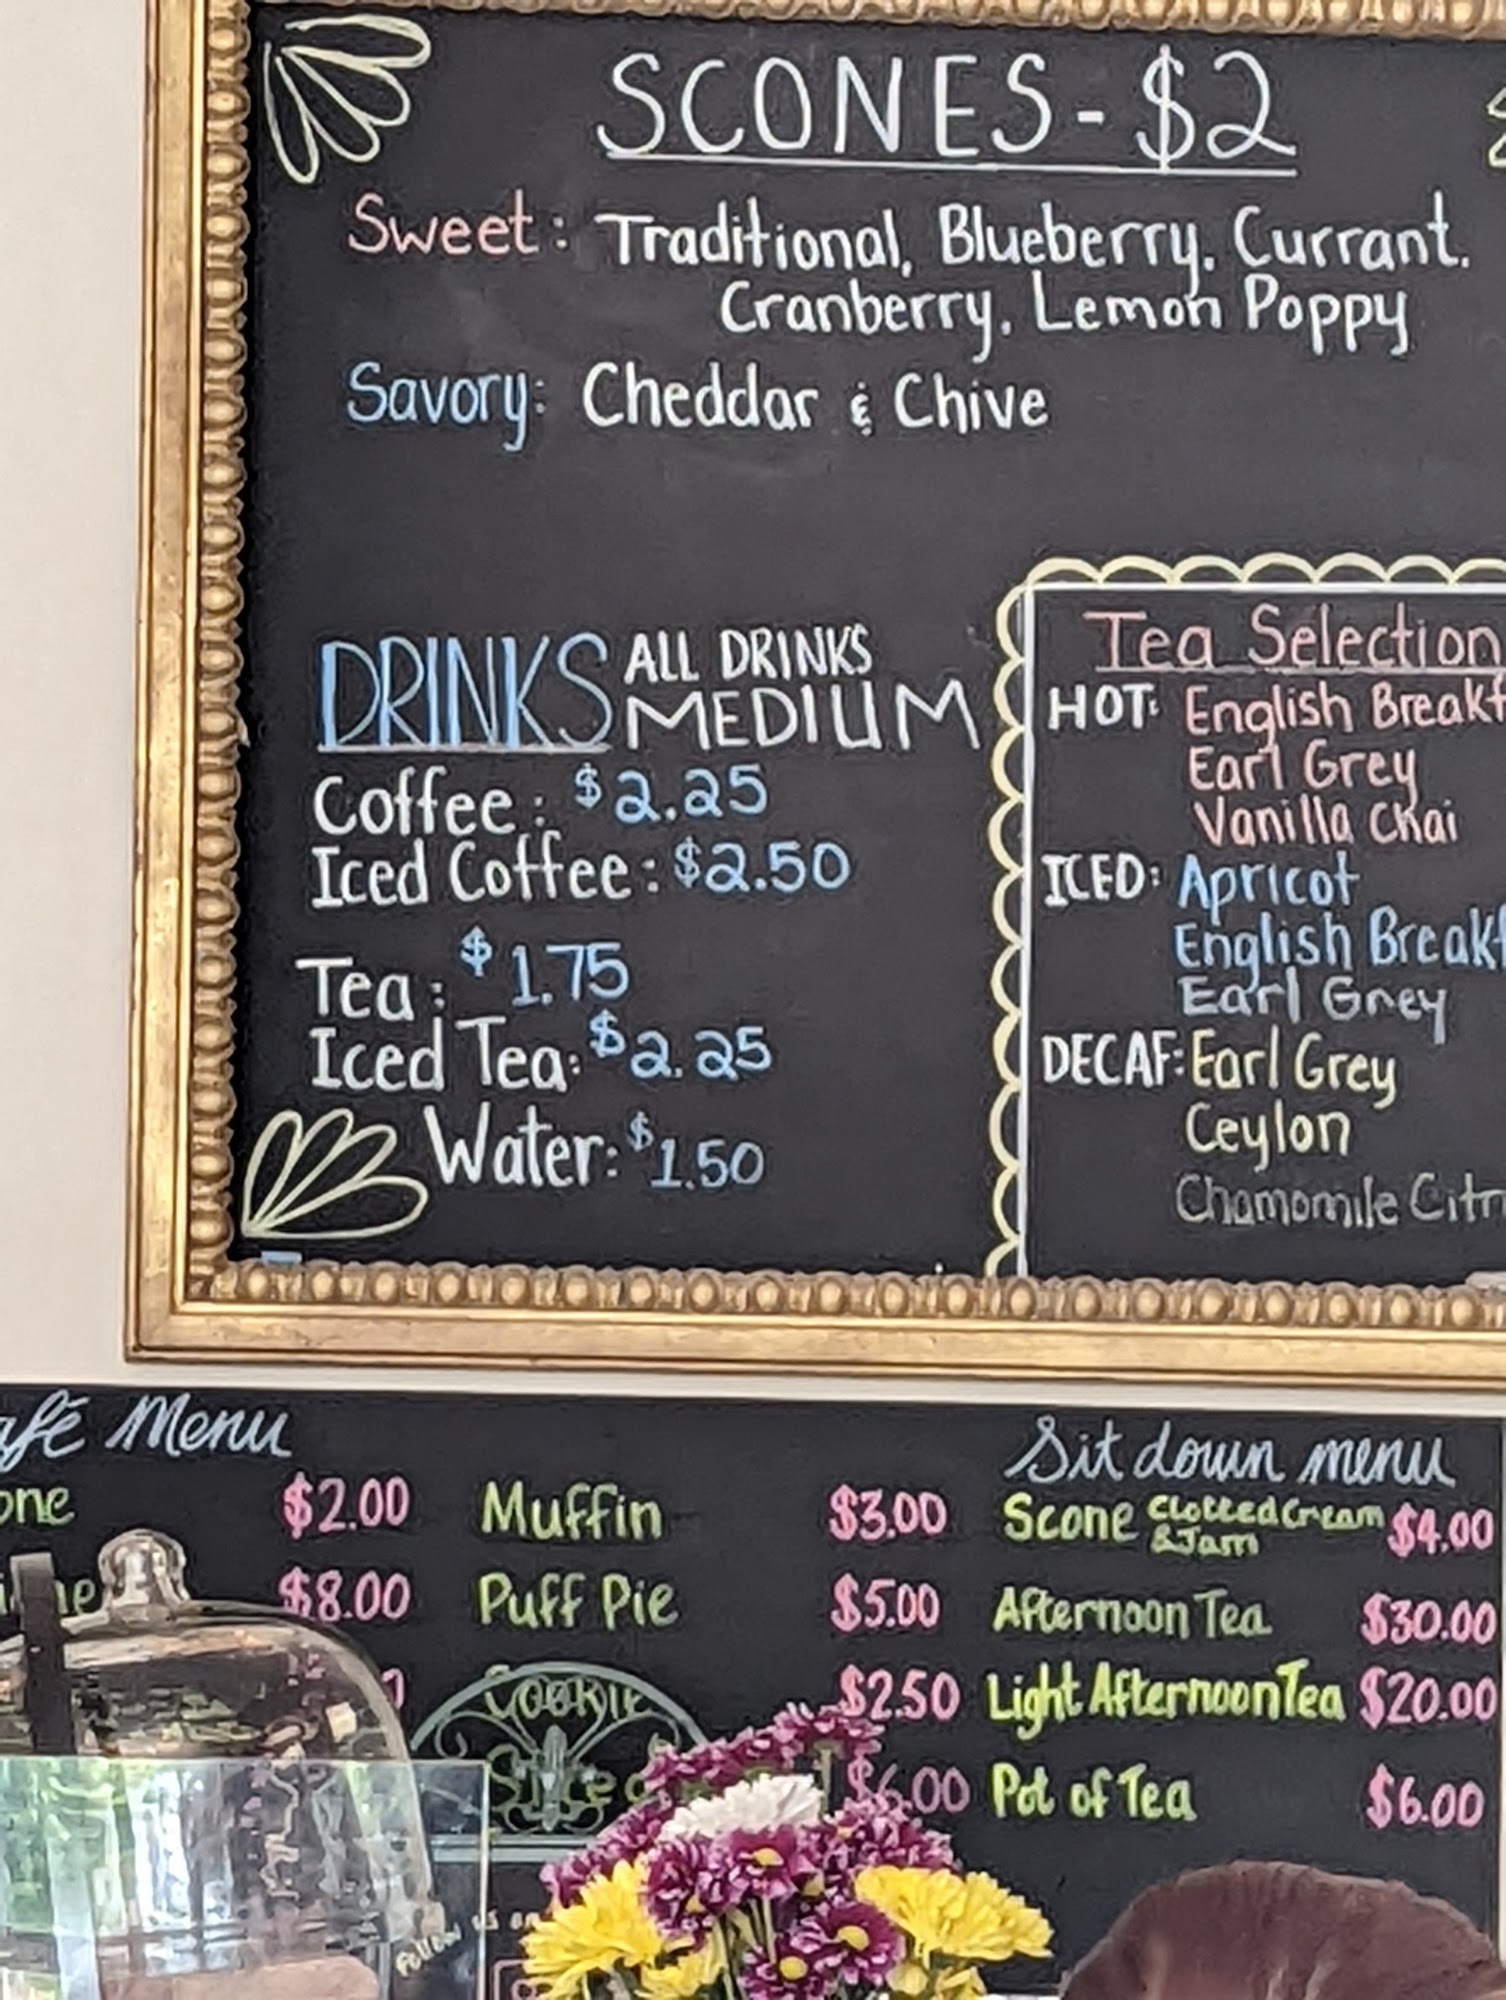 SCONES - $2
Sweet: Traditional, Blueberry, Currant,
Cranberry, Lemon Poppy
Savory: Cheddar & Chive
DRINKS ALL DRINKS
MEDIUM
Coffee: $2.25
Iced Coffee: $2.50
Tea: $1.75
Iced Tea: $2.25
Water: $1.50
Tea Selection
HOT: English Breakf
Earl Grey
Vanilla Chai
ICED: Apricot
English Breakf
Earl Grey
DECAF: Earl Grey
Ceylon
Chamomile Citr
afé Menu
one $2.00
$8.00
Muffin $3.00
Puff Pie $5.00
Cookie $2.50
$6.00
Sit down menu
Scone Clotted Cream & Jam $4.00
Afternoon Tea $30.00
Light Afternoon Tea $20.00
Pot of Tea $6.00
Follow us on